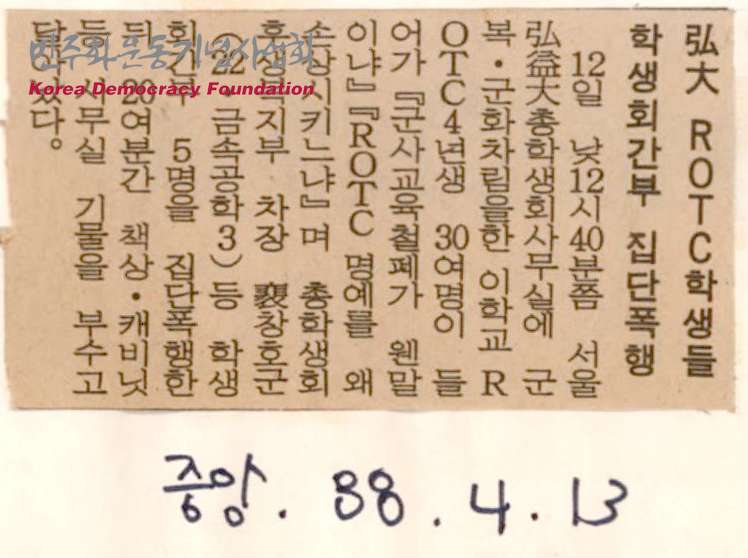 弘大 ROTC학생들
학생회간부 집단폭행
12일 낮12시40분쯤 서울
弘益大총학생회사무실에 군
복·군화차림을한 이학교 R
OTC4년생 30여명이 들
어가 『군사교육철폐가 웬말
이냐』『ROTC 명예를 왜
손상시키느냐』며 총학생회
후생복지부 차장 裵창호군
(22·금속공학3)등 학생
회간부 5명을 집단폭행한
뒤 20여분간 책상·캐비닛
등 사무실 기물을 부수고
달아났다。
민주화운동기념사업회
Korea Democracy Foundation
중앙. 88. 4. 13